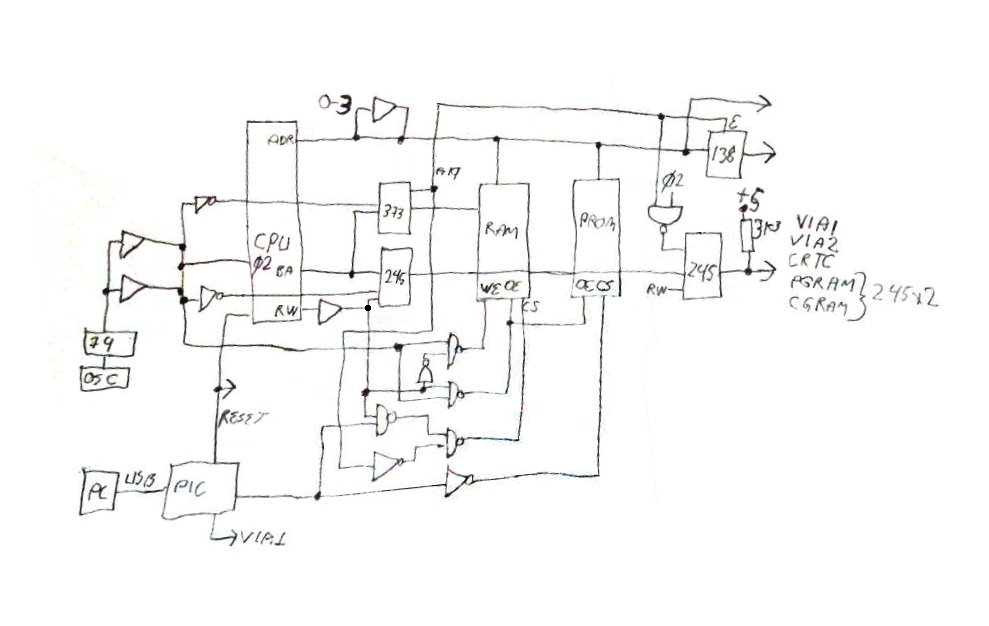 0-3
ADR
E
138
A17
Φ2
+5
3K3
373
RAM
PROM
CPU
Φ2 BA
245
245
VIA1
VIA2
CRTC
PGRAM
CGRAM
245x2
RW
WE OE
CS
OE CS
RW
74
OSC
RESET
PC
USB
PIC
VIA1